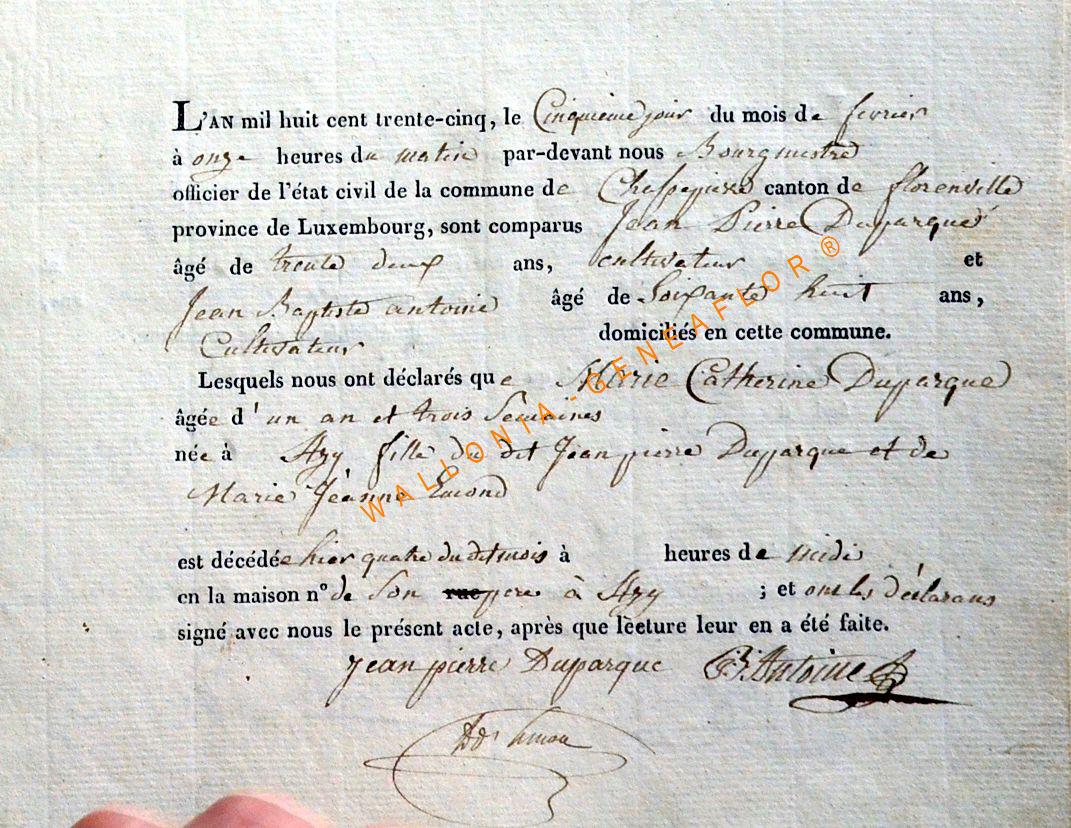 L'AN mil huit cent trente-cinq, le Cinquieme jour du mois de fevrier
à onze heures du matin par-devant nous Bourgmestre
officier de l'état civil de la commune de Chassepierre canton de florenville
province de Luxembourg, sont comparus Jean Pierre Duparque
âgé de trente deux ans, cultivateur et
Jean Baptiste antoine âgé de Soixante huit ans,
Cultivateur domiciliés en cette commune.
Lesquels nous ont déclarés que Marie Catherine Duparque
âgée d'un an et trois Semaines
née à Azy fille du dit Jean pierre Duparque et de
Marie Jeanne Emond
est décédée hier quatre du dit mois à heures de midi
en la maison n° de Son rue pere à Azy ; et ont les déclarans
signé avec nous le présent acte, après que lecture leur en a été faite.
Jean pierre Duparque JB Antoine
WALLONIA-GENEAFLOR®